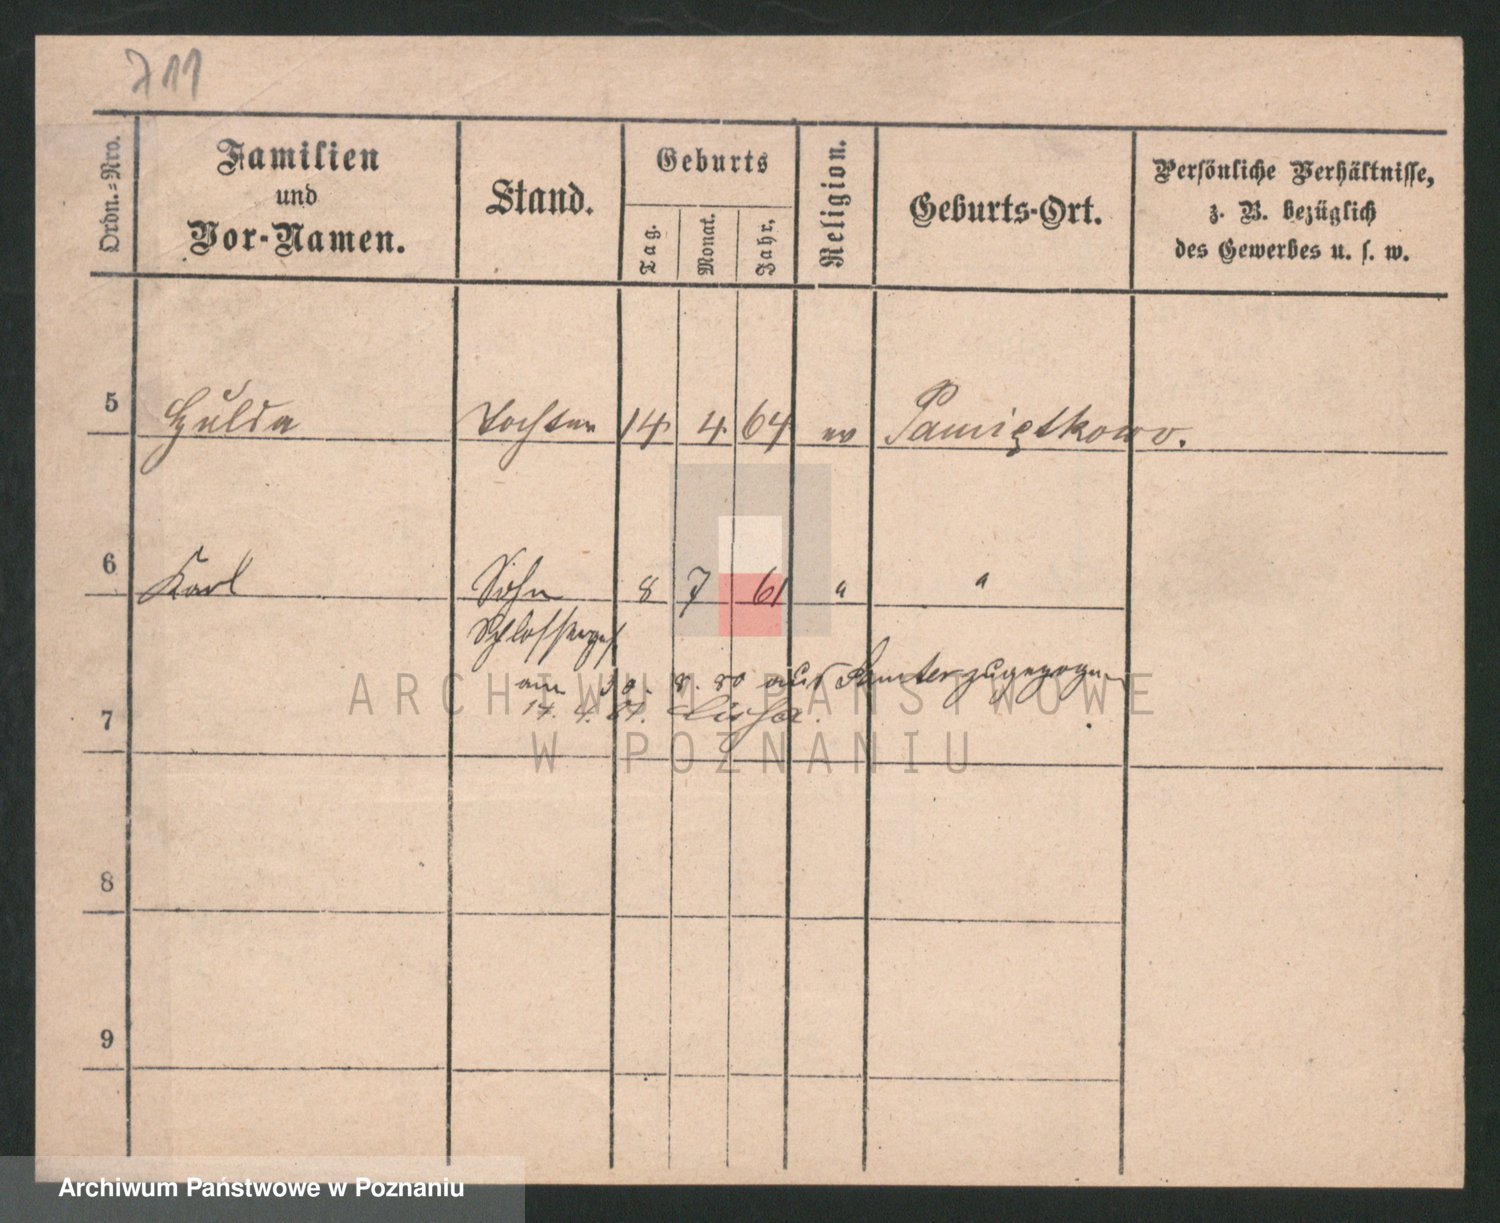 711
Ordn.=Nro.
Familien
und
Vor-Namen.
Stand.
Geburts
Tag.
Monat.
Jahr,
Religion.
Geburts-Ort.
Persönliche Verhältnisse,
z. B. bezüglich
des Gewerbes u. s. w.
5 Hulda Tochter 14. 4. 64 ev Pamiętkowo.
6 Karl Sohn 8 7 61 " "
Schlosserges
am 30. 8. 80 aus Samter zugezogen
7 17. 4. 81.
8
9
ARCHIWUM PAŃSTWOWE
W POZNANIU
Archiwum Państwowe w Poznaniu